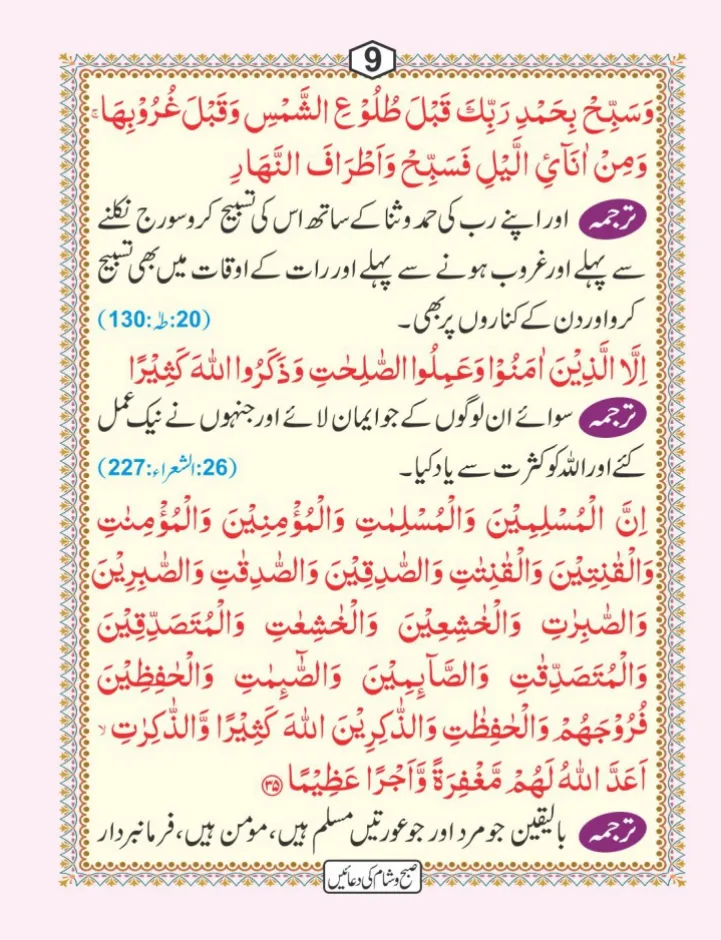 9
وَسَبِّحْ بِحَمْدِ رَبِّكَ قَبْلَ طُلُوْعِ الشَّمْسِ وَقَبْلَ غُرُوْبِهَا ۚ
وَمِنْ اٰنَآئِ الَّيْلِ فَسَبِّحْ وَاَطْرَافَ النَّهَارِ
ترجمہ اور اپنے رب کی حمد و ثنا کے ساتھ اس کی تسبیح کرو سورج نکلنے
سے پہلے اور غروب ہونے سے پہلے اور رات کے اوقات میں بھی تسبیح
کرو اور دن کے کناروں پر بھی۔ (20:طٰہٰ:130)
اِلَّا الَّذِيْنَ اٰمَنُوْا وَعَمِلُوا الصّٰلِحٰتِ وَذَكَرُوا اللّٰهَ كَثِيْرًا
ترجمہ سوائے ان لوگوں کے جو ایمان لائے اور جنہوں نے نیک عمل
کئے اور اللہ کو کثرت سے یاد کیا۔ (26:الشعراء:227)
اِنَّ الْمُسْلِمِيْنَ وَالْمُسْلِمٰتِ وَالْمُؤْمِنِيْنَ وَالْمُؤْمِنٰتِ
وَالْقٰنِتِيْنَ وَالْقٰنِتٰتِ وَالصّٰدِقِيْنَ وَالصّٰدِقٰتِ وَالصّٰبِرِيْنَ
وَالصّٰبِرٰتِ وَالْخٰشِعِيْنَ وَالْخٰشِعٰتِ وَالْمُتَصَدِّقِيْنَ
وَالْمُتَصَدِّقٰتِ وَالصَّآىِٕمِيْنَ وَالصّٰٓىِٕمٰتِ وَالْحٰفِظِيْنَ
فُرُوْجَهُمْ وَالْحٰفِظٰتِ وَالذّٰكِرِيْنَ اللّٰهَ كَثِيْرًا وَّالذّٰكِرٰتِ ۙ
اَعَدَّ اللّٰهُ لَهُمْ مَّغْفِرَةً وَّاَجْرًا عَظِيْمًا ﴿۳۵﴾
ترجمہ بالیقین جو مرد اور جو عورتیں مسلم ہیں، مومن ہیں، فرمانبردار
صبح و شام کی دعائیں